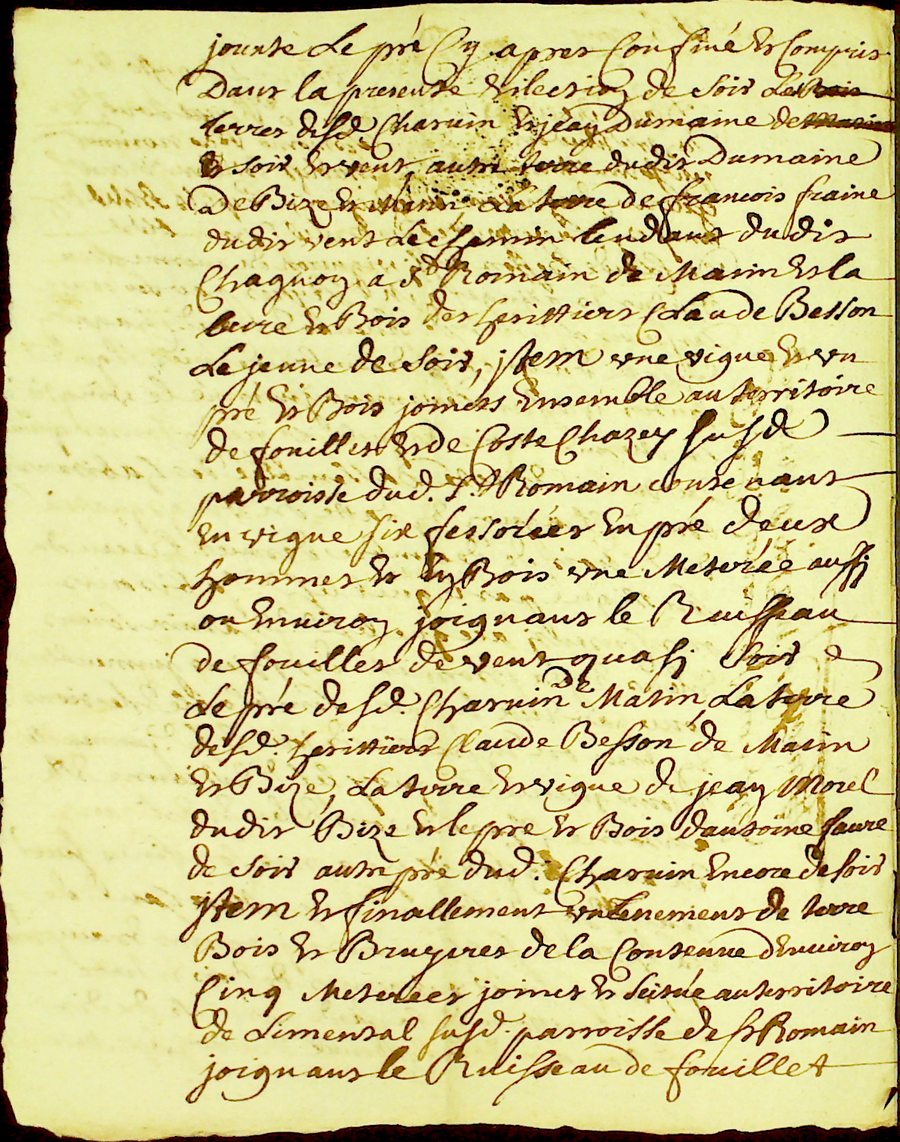 jouxte Le pré Cy apres Confiné et Compris
Dans la presente de soir
terres desd. Charvin et jean Dumaine de
et soir et vent autre terre dudit Dumaine
De Bize et La terre de francois fraine
dudit vent Le chemin tendant du dit
Chagnon a St Romain de Matin et la
terre et Bois des herittiers Claude Besson
Le jeune de soir, jtem une vigne et un
pré et Bois joincts Ensemble au territoire
de fouilles et de Coste Chazey susd.
parroisse dud. St Romain contenant
En vigne six fessoréés En pré deux
hommes et En Bois une Meterée aussj
ou Environ joignant le Ruisseau
de fouilles de vent quasj soir
Le pré desd. Charvin de Matin, La terre
desd. herittiers Claude Besson de Matin
et Bize, La terre et vigne de jean Morel
dudit Bize et le pre et Bois dantoine faure
de soir autre pré dud. Charvin Encore de soir
jtem et finallement un tenement de terre
Bois et Bruyeres de la Contenue denviron
Cinq Meterees joinct et scitué au territoire
de Limental susd. parroisse de st Romain
joignant le Ruisseau de fouillet